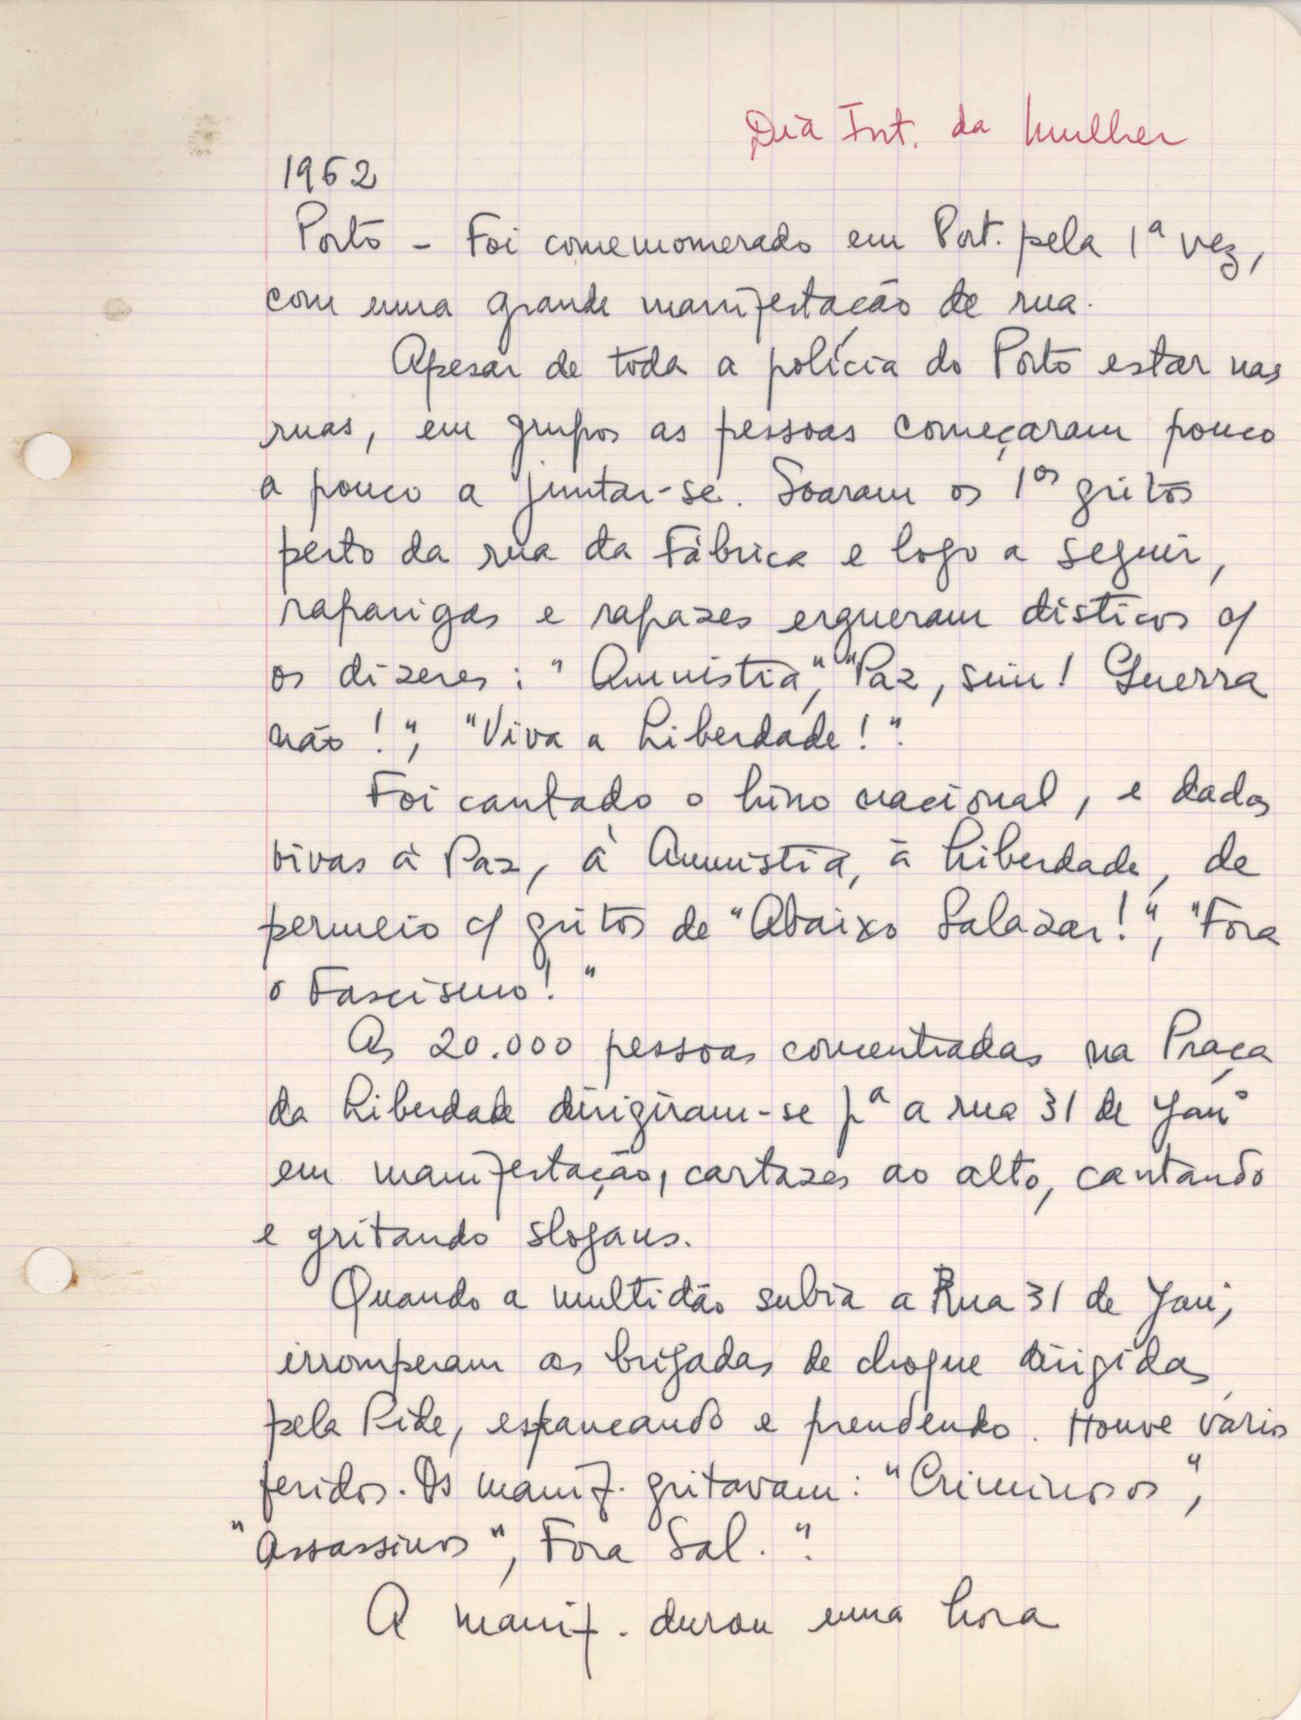 Dia Int. da Mulher
1962
Porto - Foi comemomerado em Port. pela 1ª vez,
com uma grande manifestação de rua.
Apesar de toda a polícia do Porto estar nas
ruas, em grupos as pessoas começaram pouco
a pouco a juntar-se. Soaram os 1os gritos
perto da rua da Fábrica e logo a seguir,
raparigas e rapazes ergueram disticos c/
os dizeres: "Amnistia", "Paz, sim! Guerra
não!", "Viva a Liberdade!".
Foi cantado o hino nacional, e dados
vivas à Paz, à Amnistia, à Liberdade, de
permeio c/ gritos de "Abaixo Salazar!", "Fora
o Fascismo!"
As 20.000 pessoas concentradas na Praça
da Liberdade dirigiram-se pª a rua 31 de Janº
em manifestação, cartazes ao alto, cantando
e gritando slogans.
Quando a multidão subia a Rua 31 de Jan,
irromperam as brigadas de choque dirigidas
pela Pide, espancando e prendendo. Houve vários
feridos. Os manif. gritavam: "Criminosos",
"Assassinos", Fora Sal.".
A manif. durou uma hora